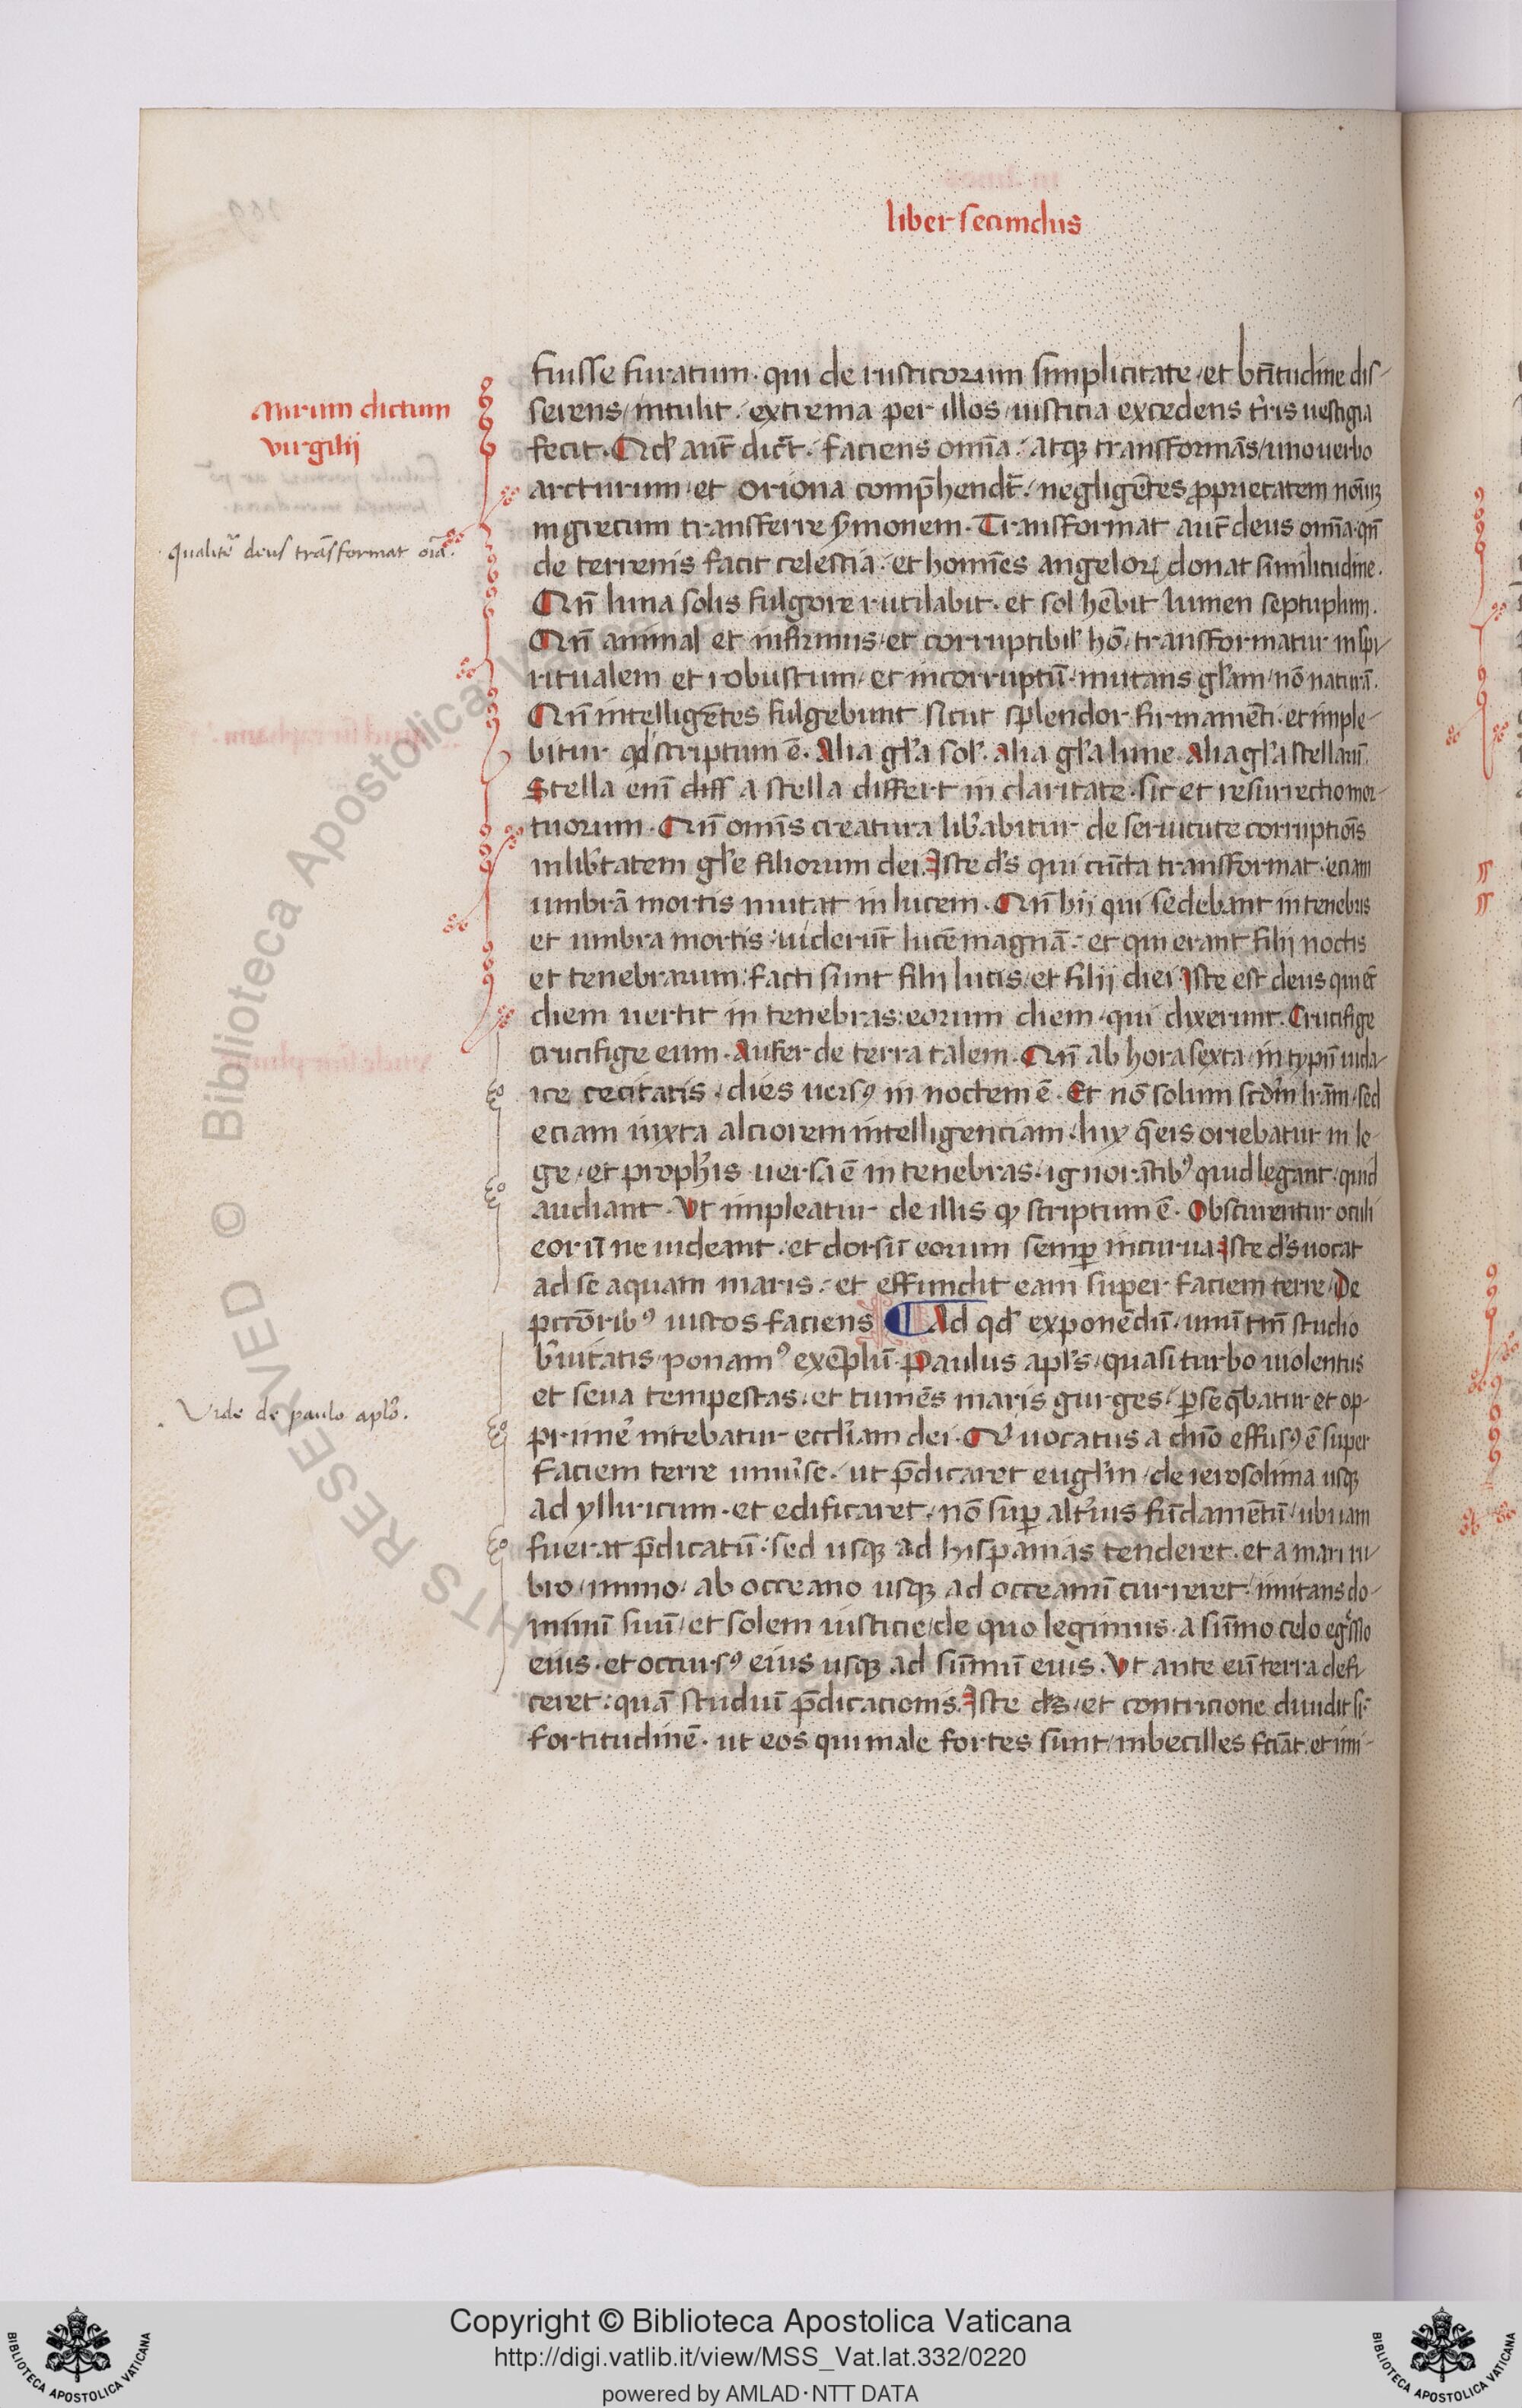 liber secundus
fuisse furatum. qui de rusticorum simplicitate / et btitudine dis-
serens / intulit. / extrema per illos / iusticia excedens tris uestigia
fecit. Qd aut dict. faciens omia. atqꝫ transformãs / uno uerbo
arcturum / et oriona comp̃hendt. / negligẽtes ꝓprietatem nom̃
in grecum transferre smonem. Transformat aut deus omia. qn̄
de terrenis facit celestia. et homies angeloꝝ donat similitudine.
Qn̄ luna solis fulgore rutilabit. et sol hẽbit lumen septuplum.
Qn̄ animal et infirmus / et corruptibil hõ / transformatur in spi-
ritualem et robustum / et incorruptũ. / mutans glam / nõ naturã.
Qn̄ intelligẽtes fulgebunt sicut splendor firmamẽti. et imple-
bitur qd scriptum ẽ. Alia gla sol. alia gla lune. Alia gla stellarũ.
Stella enĩ diff a stella differt in claritate. sic et resurrectio mor-
tuorum. Qn̄ omis creatura libabitur de seruitute corruptiõis
in libtatem gle filiorum dei. Iste ds qui cũcta transformat. / eciam
umbrã mortis mutat in lucem. Qn̄ hij qui sedebant in tenebris
et umbra mortis / uiderũt lucẽ magnã. / et qui erant filij noctis
et tenebrarum / facti sunt filij lucis / et filij diei. Iste est deus qui et
diem uertit in tenebras: eorum diem / qui dixerunt. Crucifige
crucifige eum. Aufer de terra talem. Qn̄ ab hora sexta / in typũ iuda-
ice cecitatis / dies uersꝰ in noctem ẽ. Et nõ solum scdm lram / sed
eciam iuxta alciorem intelligenciam. / lux q̃ eis oriebatur in le-
ge / et prophis uersa ẽ in tenebras. ignorãtibꝰ quid legant. quid
audiant. Vt impleatur de illis qꝫ scriptum ẽ. Obscurentur oculi
eorũ ne uideant. / et dorsũ eorum semꝑ incurua. Iste ds uocat
ad se aquam maris. / et effundit eam super faciem terre / De
pccõribꝰ iustos faciens ¶ Ad qd exponẽdũ / unũ tm̃ studio
breuitatis / ponamꝰ exẽplũ. Paulus apls / quasi turbo uiolentus
et seua tempestas. et tumẽs maris gurges / ꝑseq̃batur et op-
primẽ nitebatur eccliam dei. Qui uocatus a dñio effusꝰ ẽ super
faciem terre uniuse. / ut p̃dicaret euglm / de ierosolima usqꝫ
ad ylliricum. et edificaret. / nõ suꝑ altius fũdamẽtũ / ubi iam
fuerat p̃dicatũ. sed usqꝫ ad hispanias tenderet. et a mari ru-
bro / immo / ab occeano usqꝫ ad occeanũ curreret. / imitans do-
minũ suũ / et solem iusticie / de quo legimus. a sũmo celo egssio
eius. et occursꝰ eius usqꝫ ad sũmũ eius. Vt ante eũ terra defi-
ceret: quã studiũ p̃dicacionis. Iste ds / et contricione diuidit sr
fortitudinẽ. ut eos qui male fortes sunt / inbecilles fciat. et imi-
Mirum dictum
virgilij
qualitr deus trãsformat oĩa.
Vide de paulo aplo.
RIGHTS RESERVED © Biblioteca Apostolica Vaticana
Copyright © Biblioteca Apostolica Vaticana
http://digi.vatlib.it/view/MSS_Vat.lat.332/0220
powered by AMLAD·NTT DATA
BIBLIOTECA APOSTOLICA VATICANA
BIBLIOTECA APOSTOLICA VATICANA